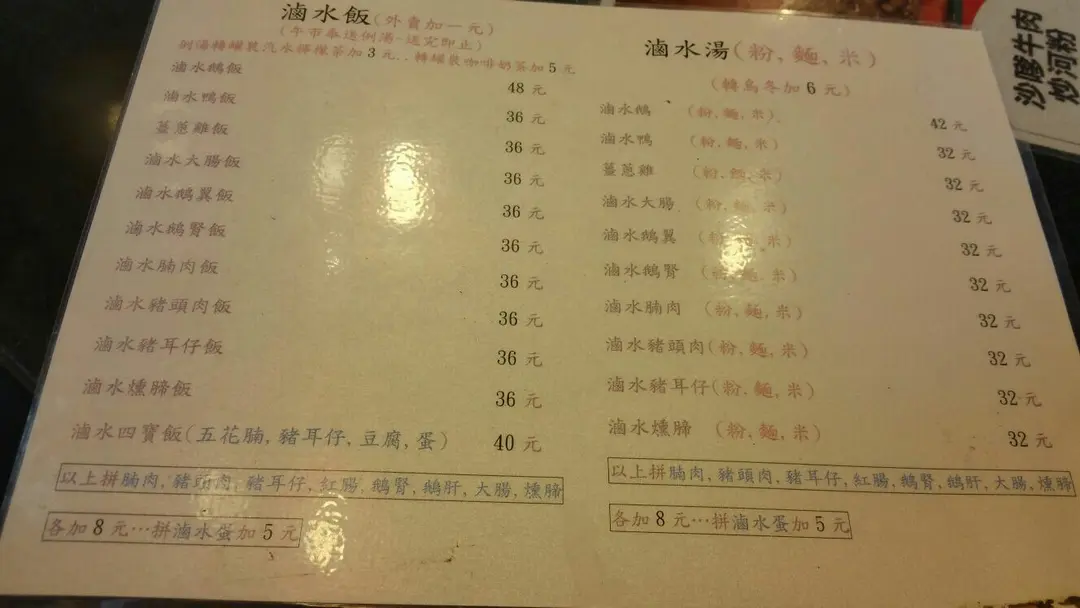 滷水飯(外賣加一元)
(午市奉送例湯-送完即止)
例湯轉罐裝汽水檸檬茶加3元..轉罐裝咖啡奶茶加5元
滷水鵝飯 48元
滷水鴨飯 36元
薑蔥雞飯 36元
滷水大腸飯 36元
滷水鵝翼飯 36元
滷水鵝腎飯 36元
滷水腩肉飯 36元
滷水豬頭肉飯 36元
滷水豬耳仔飯 36元
滷水燻蹄飯 36元
滷水四寶飯(五花腩,豬耳仔,豆腐,蛋) 40元
以上拼腩肉,豬頭肉,豬耳仔,紅腸,鵝腎,鵝肝,大腸,燻蹄
各加8元…拼滷水蛋加5元
滷水湯(粉,麵,米)
(轉烏冬加6元)
滷水鵝 (粉,麵,米) 42元
滷水鴨 (粉,麵,米) 32元
薑蔥雞 (粉,麵,米) 32元
滷水大腸 (粉,麵,米) 32元
滷水鵝翼 (粉,麵,米) 32元
滷水鵝腎 (粉,麵,米) 32元
滷水腩肉 (粉,麵,米) 32元
滷水豬頭肉(粉,麵,米) 32元
滷水豬耳仔(粉,麵,米) 32元
滷水燻蹄 (粉,麵,米) 32元
以上拼腩肉,豬頭肉,豬耳仔,紅腸,鵝腎,鵝肝,大腸,燻蹄
各加8元…拼滷水蛋加5元
沙嗲牛肉
炒河粉